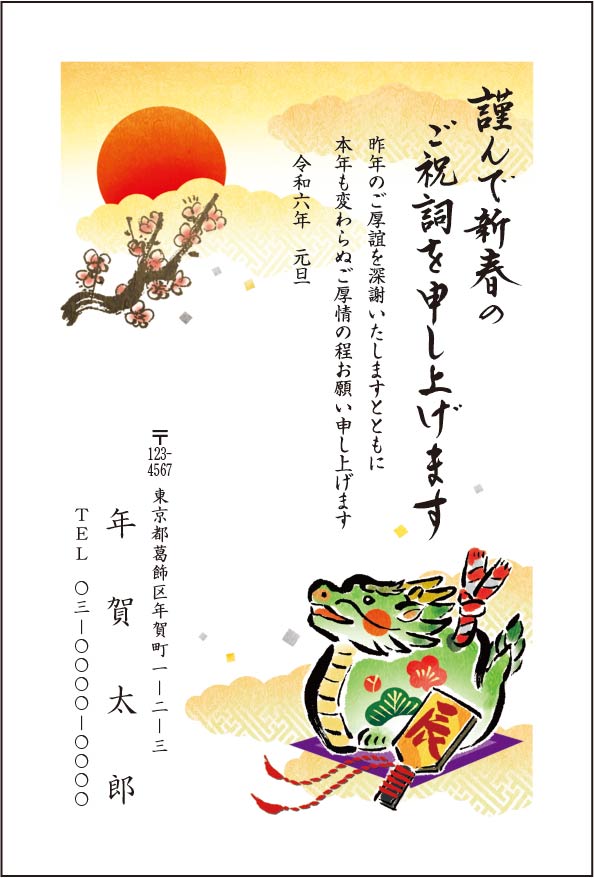 謹んで新春の
ご祝詞を申し上げます
昨年のご厚誼を深謝いたしますとともに
本年も変わらぬご厚情の程お願い申し上げます
令和六年　元旦
〒123-4567
東京都葛飾区年賀町一ー二ー三
年賀太郎
TEL　〇三ー〇〇〇〇ー〇〇〇〇
辰